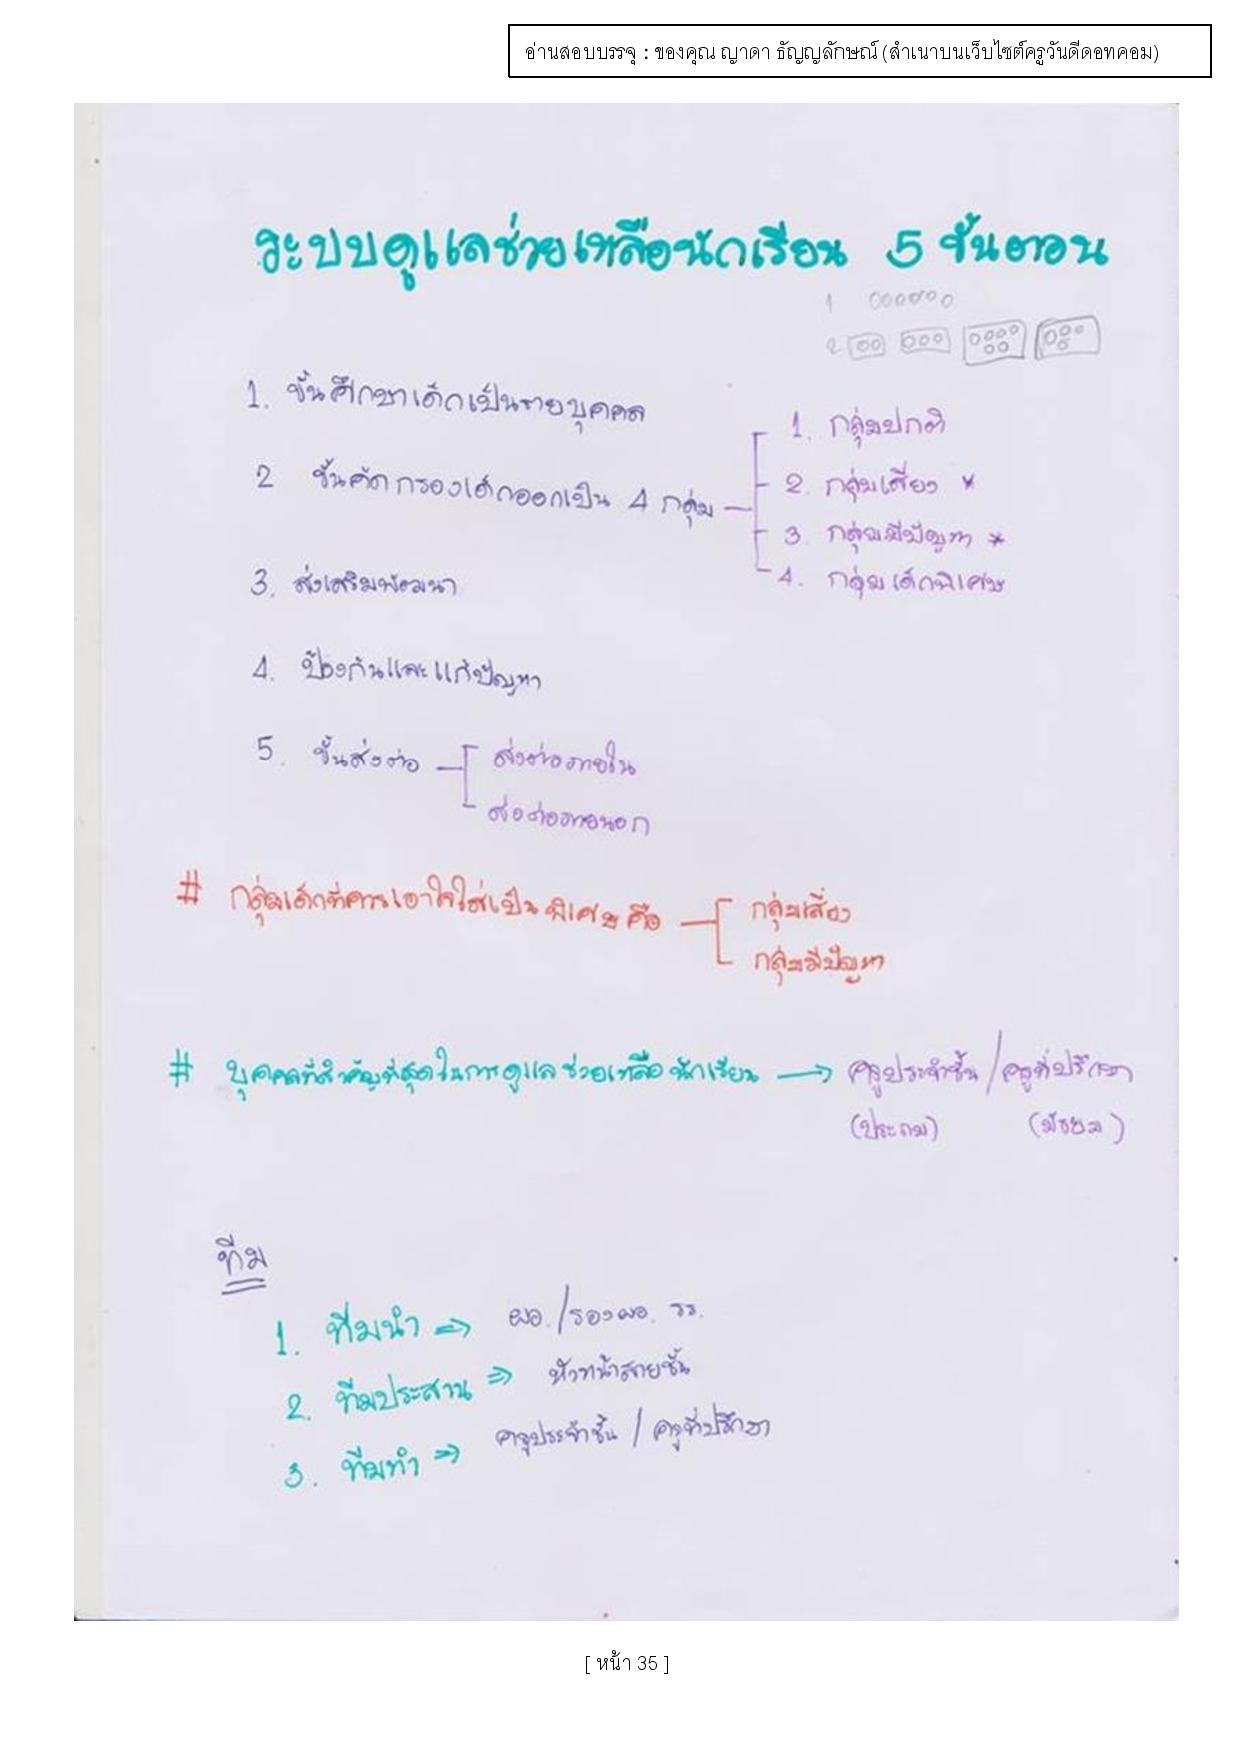 อ่านสอบบรรจุ : ของคุณ ญาดา ธัญญลักษณ์ (สำเนาบนเว็บไซต์ครูวันดีดอทคอม)
ระบบดูแลช่วยเหลือนักเรียน 5 ขั้นตอน
1 000000
2 00 000 000000 0000
1. ขั้นศึกษาเด็กเป็นรายบุคคล
2 ขั้นคัดกรองเด็กออกเป็น 4 กลุ่ม
1. กลุ่มปกติ
2. กลุ่มเสี่ยง *
3. กลุ่มมีปัญหา *
4. กลุ่มเด็กพิเศษ
3. ส่งเสริมพัฒนา
4. ป้องกันและแก้ปัญหา
5. ขั้นส่งต่อ
ส่งต่อภายใน
ส่งต่อภายนอก
# กลุ่มเด็กที่ควรเอาใจใส่เป็นพิเศษ คือ
กลุ่มเสี่ยง
กลุ่มมีปัญหา
# บุคคลที่สำคัญที่สุดในการดูแลช่วยเหลือนักเรียน → ครูประจำชั้น / ครูที่ปรึกษา
(ประถม) (มัธยม)
ทีม
1. ทีมนำ ⇒ ผอ. / รองผอ. รร.
2. ทีมประสาน ⇒ หัวหน้าสายชั้น
3. ทีมทำ ⇒ ครูประจำชั้น / ครูที่ปรึกษา
[ หน้า 35 ]